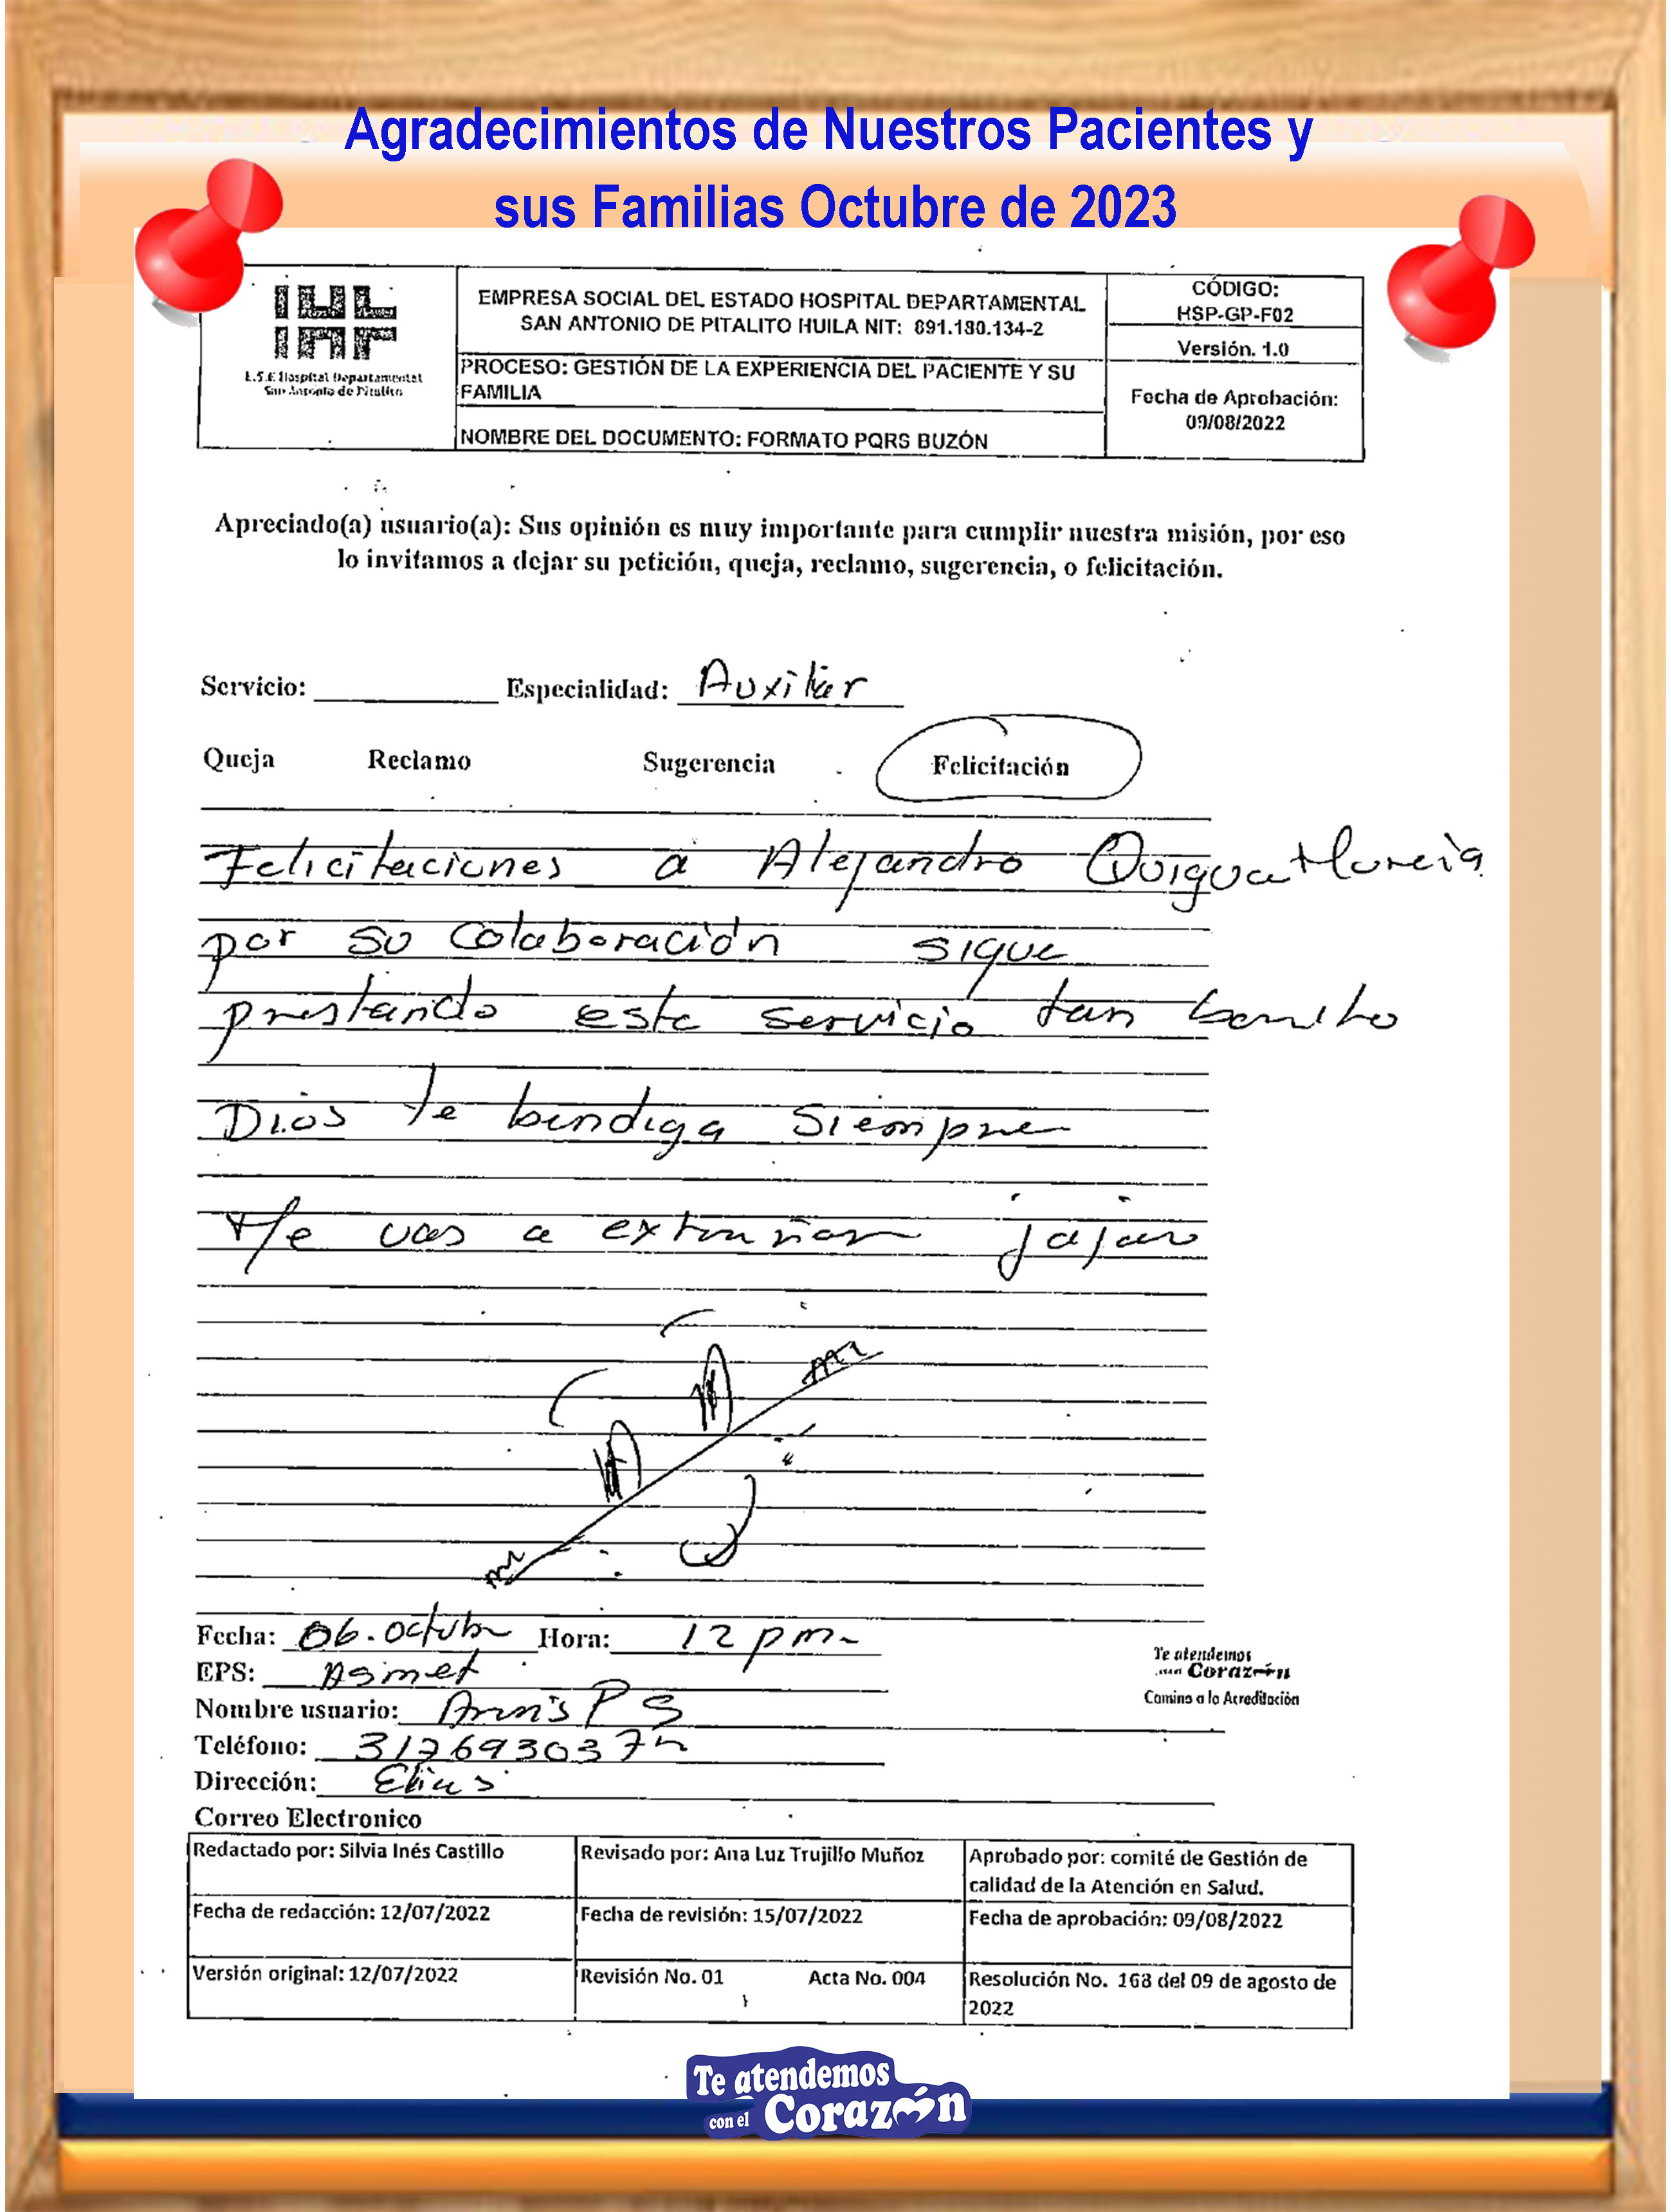 Agradecimientos de Nuestros Pacientes y
sus Familias Octubre de 2023
E.S.E Hospital Departamental
San Antonio de Pitalito
EMPRESA SOCIAL DEL ESTADO HOSPITAL DEPARTAMENTAL
SAN ANTONIO DE PITALITO HUILA NIT: 891.180.134-2
PROCESO: GESTIÓN DE LA EXPERIENCIA DEL PACIENTE Y SU
FAMILIA
NOMBRE DEL DOCUMENTO: FORMATO PQRS BUZÓN
CÓDIGO:
HSP-GP-F02
Versión. 1.0
Fecha de Aprobación:
09/08/2022
Apreciado(a) usuario(a): Sus opinión es muy importante para cumplir nuestra misión, por eso
lo invitamos a dejar su petición, queja, reclamo, sugerencia, o felicitación.
Servicio: Especialidad: Auxiliar
Queja Reclamo Sugerencia Felicitación
Felicitaciones a Alejandro Quigua Murcia
por su colaboración sigue
prestando este servicio tan bonito
Dios te bendiga siempre
Me vas a extrañar jajaja
Fecha: 06. octubre Hora: 12 pm
EPS: Asmet
Nombre usuario: P S
Teléfono:
Dirección: Elias
Correo Electronico
Te atendemos
con el Corazón
Camino a la Acreditación
Redactado por: Silvia Inés Castillo
Revisado por: Ana Luz Trujillo Muñoz
Aprobado por: comité de Gestión de
calidad de la Atención en Salud.
Fecha de redacción: 12/07/2022
Fecha de revisión: 15/07/2022
Fecha de aprobación: 09/08/2022
Versión original: 12/07/2022
Revisión No. 01 Acta No. 004
Resolución No. 168 del 09 de agosto de
2022
Te atendemos
con el Corazón